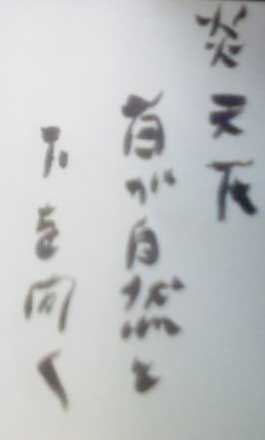 炎天下
首が自然と
下を向く